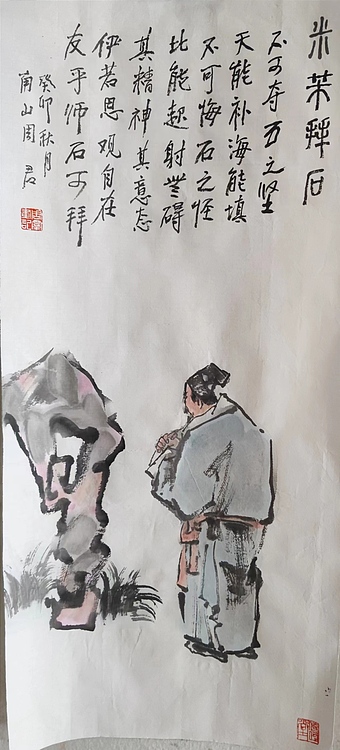 米芾拜石
不可夺石之坚
天能补海能填
不可悔石之怪
能起射無碍
其精神其意态
伊若思观自在
友乎师石可拜
癸卯秋月
南山周君